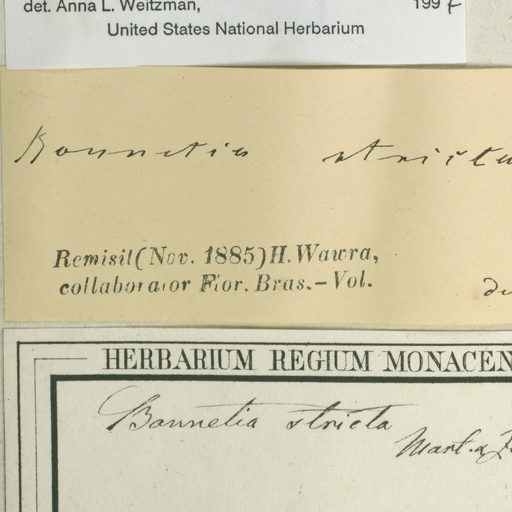 det. Anna L. Weitzman, 199
United States National Herbarium
Bonnetia stricta
Remisit (Nov. 1885) H. Wawra,
collaborator Flor. Bras. – Vol.
HERBARIUM REGIUM MONACEN
Bonnetia stricta
Mart. &